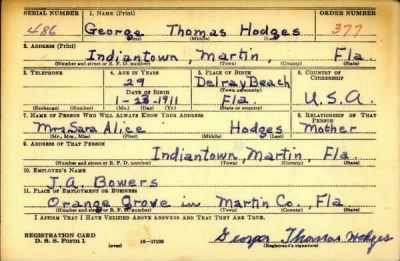 SERIAL NUMBER 1. NAME (Print) ORDER NUMBER
486 George Thomas Hodges 377
(First) (Middle) (Last)
2. ADDRESS (Print)
Indiantown, Martin, Fla.
(Number and street or R. F. D. number) (Town) (County) (State)
3. TELEPHONE 4. AGE IN YEARS 5. PLACE OF BIRTH 6. COUNTRY OF CITIZENSHIP
29 Delray Beach
DATE OF BIRTH (Town or county)
1-23-1911 Fla. U.S.A.
(Exchange) (Number) (Mo.) (Day) (Yr.) (State or country)
7. NAME OF PERSON WHO WILL ALWAYS KNOW YOUR ADDRESS 8. RELATIONSHIP OF THAT PERSON
Mrs. Sara Alice Hodges Mother
(Mr., Mrs., Miss) (First) (Middle) (Last)
9. ADDRESS OF THAT PERSON
Indiantown, Martin, Fla.
(Number and street or R. F. D. number) (Town) (County) (State)
10. EMPLOYER'S NAME
J.A. Bowers
11. PLACE OF EMPLOYMENT OR BUSINESS
Orange Grove in Martin Co., Fla.
(Number and street or R. F. D. number) (Town) (County) (State)
I AFFIRM THAT I HAVE VERIFIED ABOVE ANSWERS AND THAT THEY ARE TRUE.
REGISTRATION CARD George Thomas Hodges
D. S. S. Form 1 (over) 16-17105 (Registrant's signature)